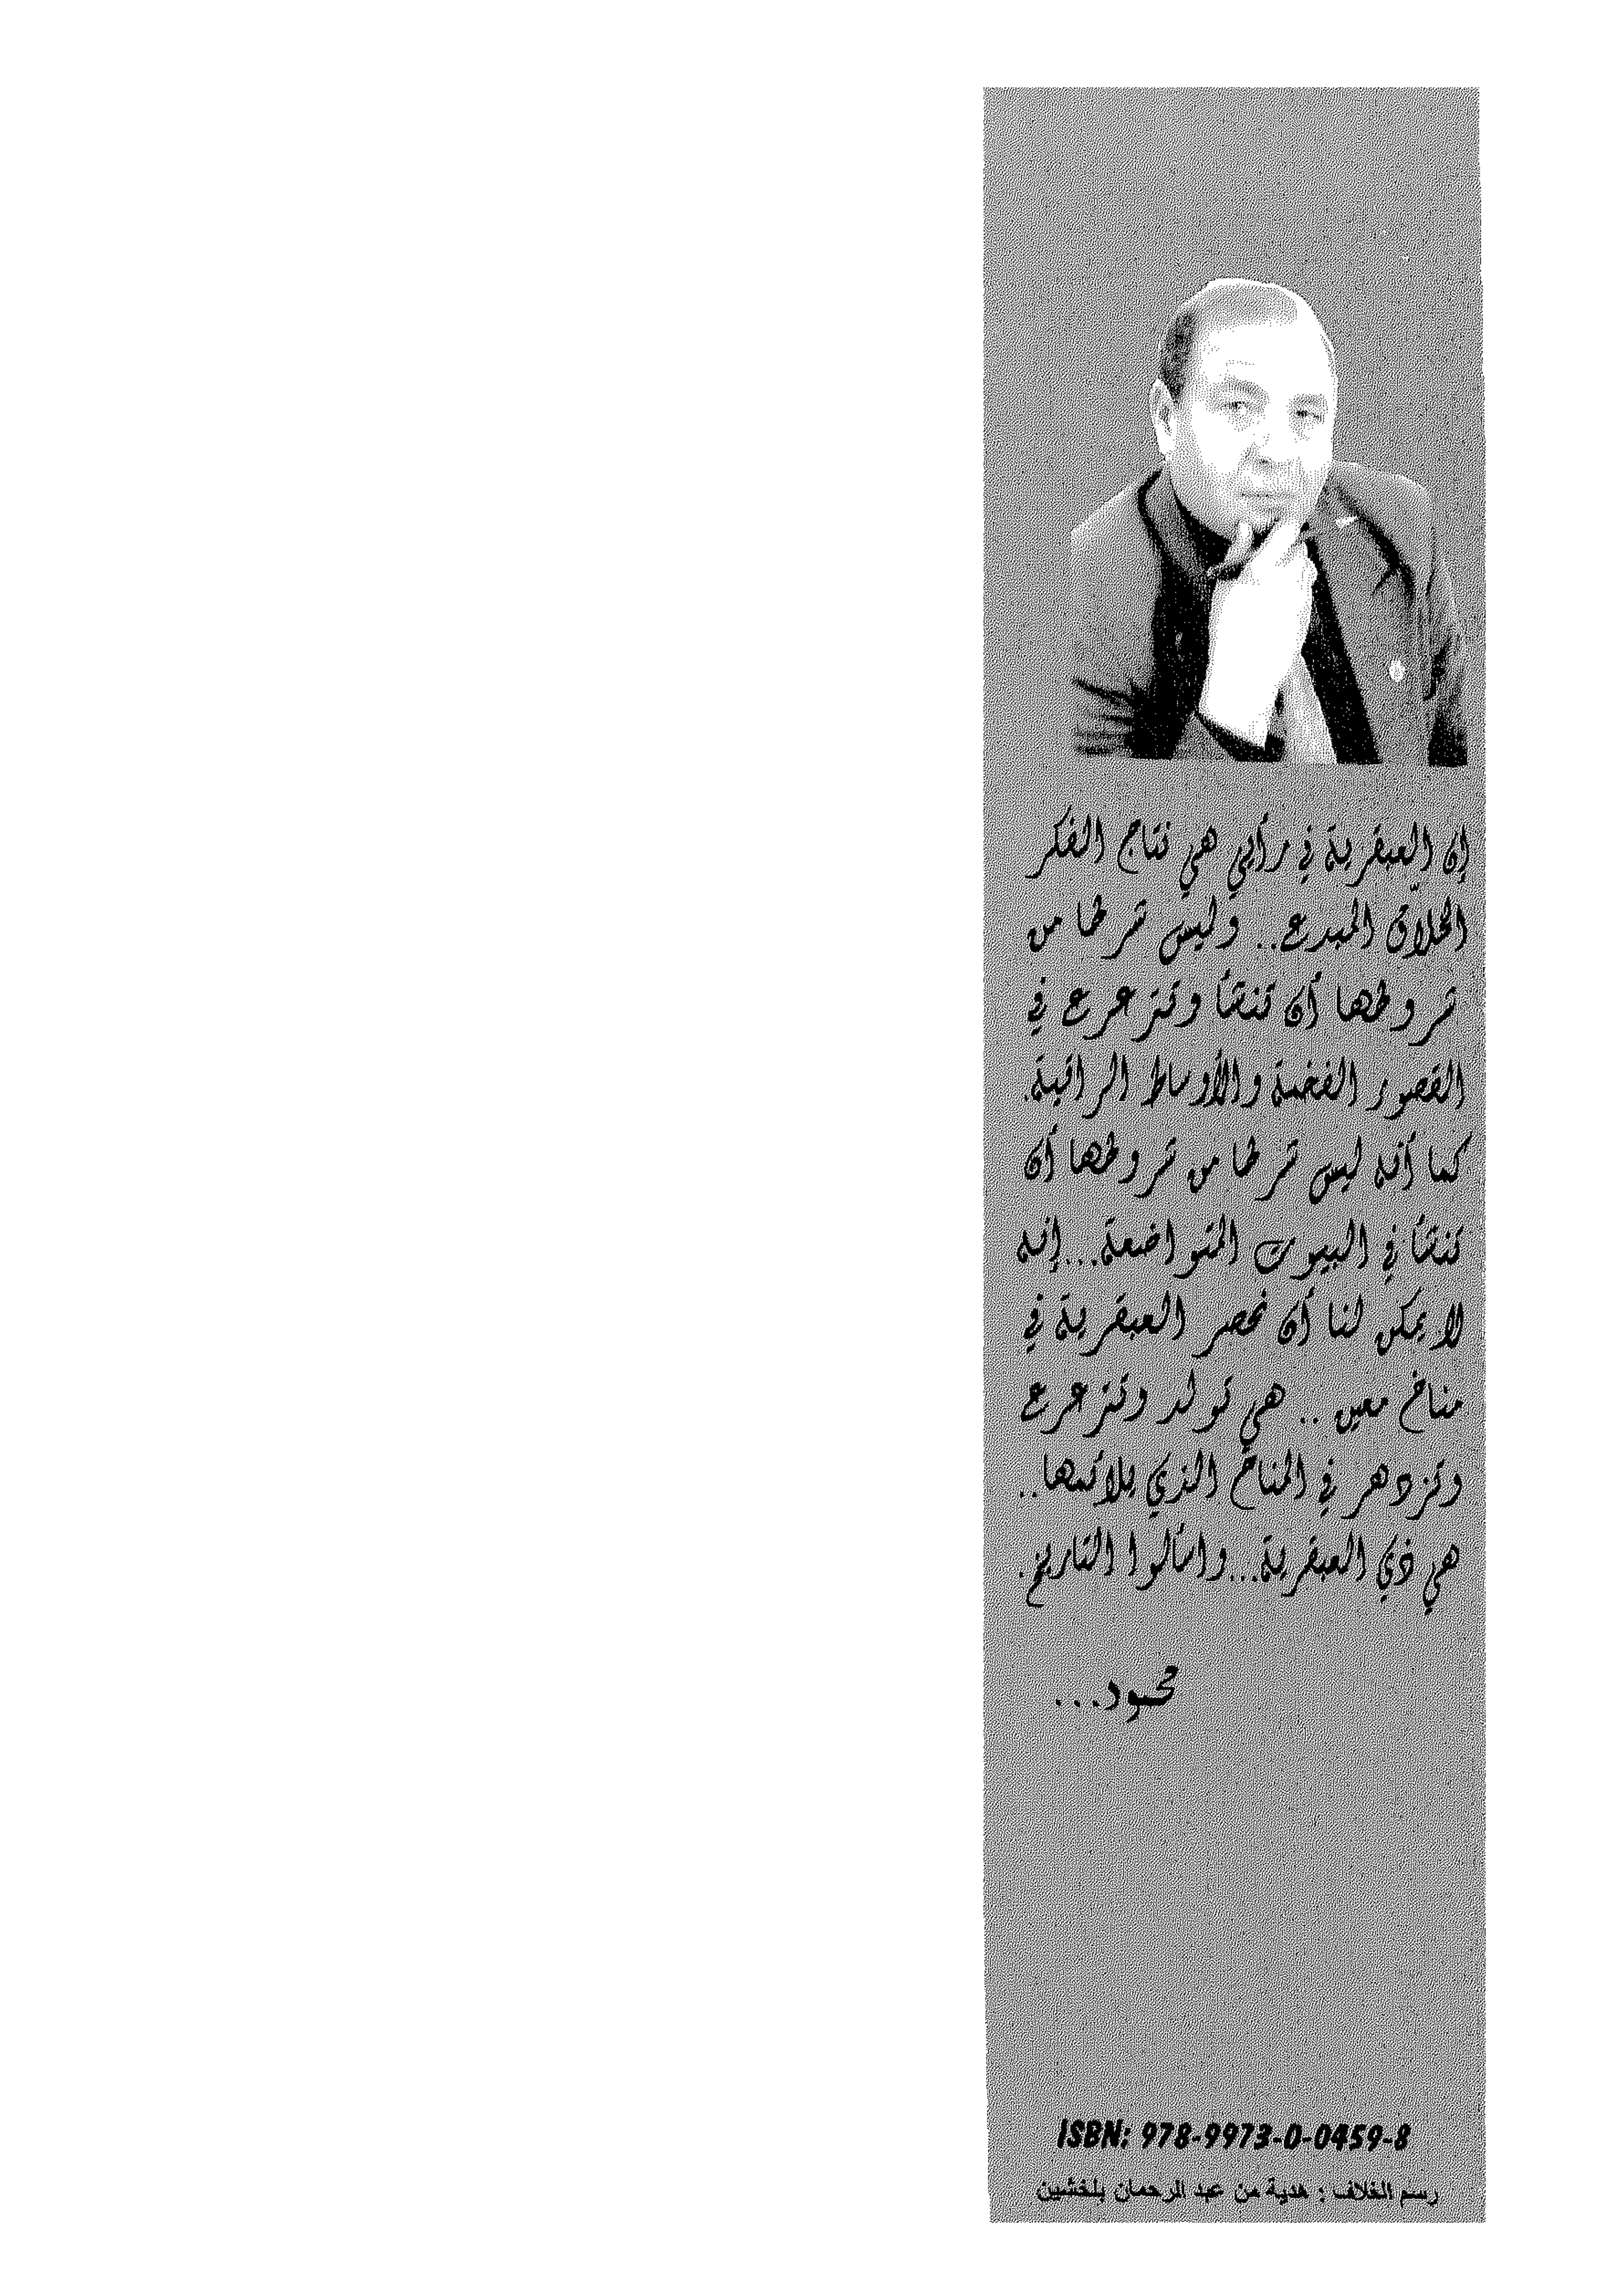 إن العبقرية في رأيي هي نتاج الفكر
الخلاّق المبدع.. وليس شرطا من
شروطها أن تنشأ وتترعرع في
القصور الفخمة والأوساط الراقية.
كما أنه ليس شرطا من شروطها أن
تنشأ في البيوت المتواضعة...إنه
لا يمكن لنا أن نحصر العبقرية في
مناخ معين .. هي تولد وتترعرع
وتزدهر في المناخ الذي يلائمها..
هي ذي العبقرية...واسألوا التاريخ.
محمود...
ISBN: 978-9973-0-0459-8
رسم الغلاف : هدية من عبد الرحمان بلخشين